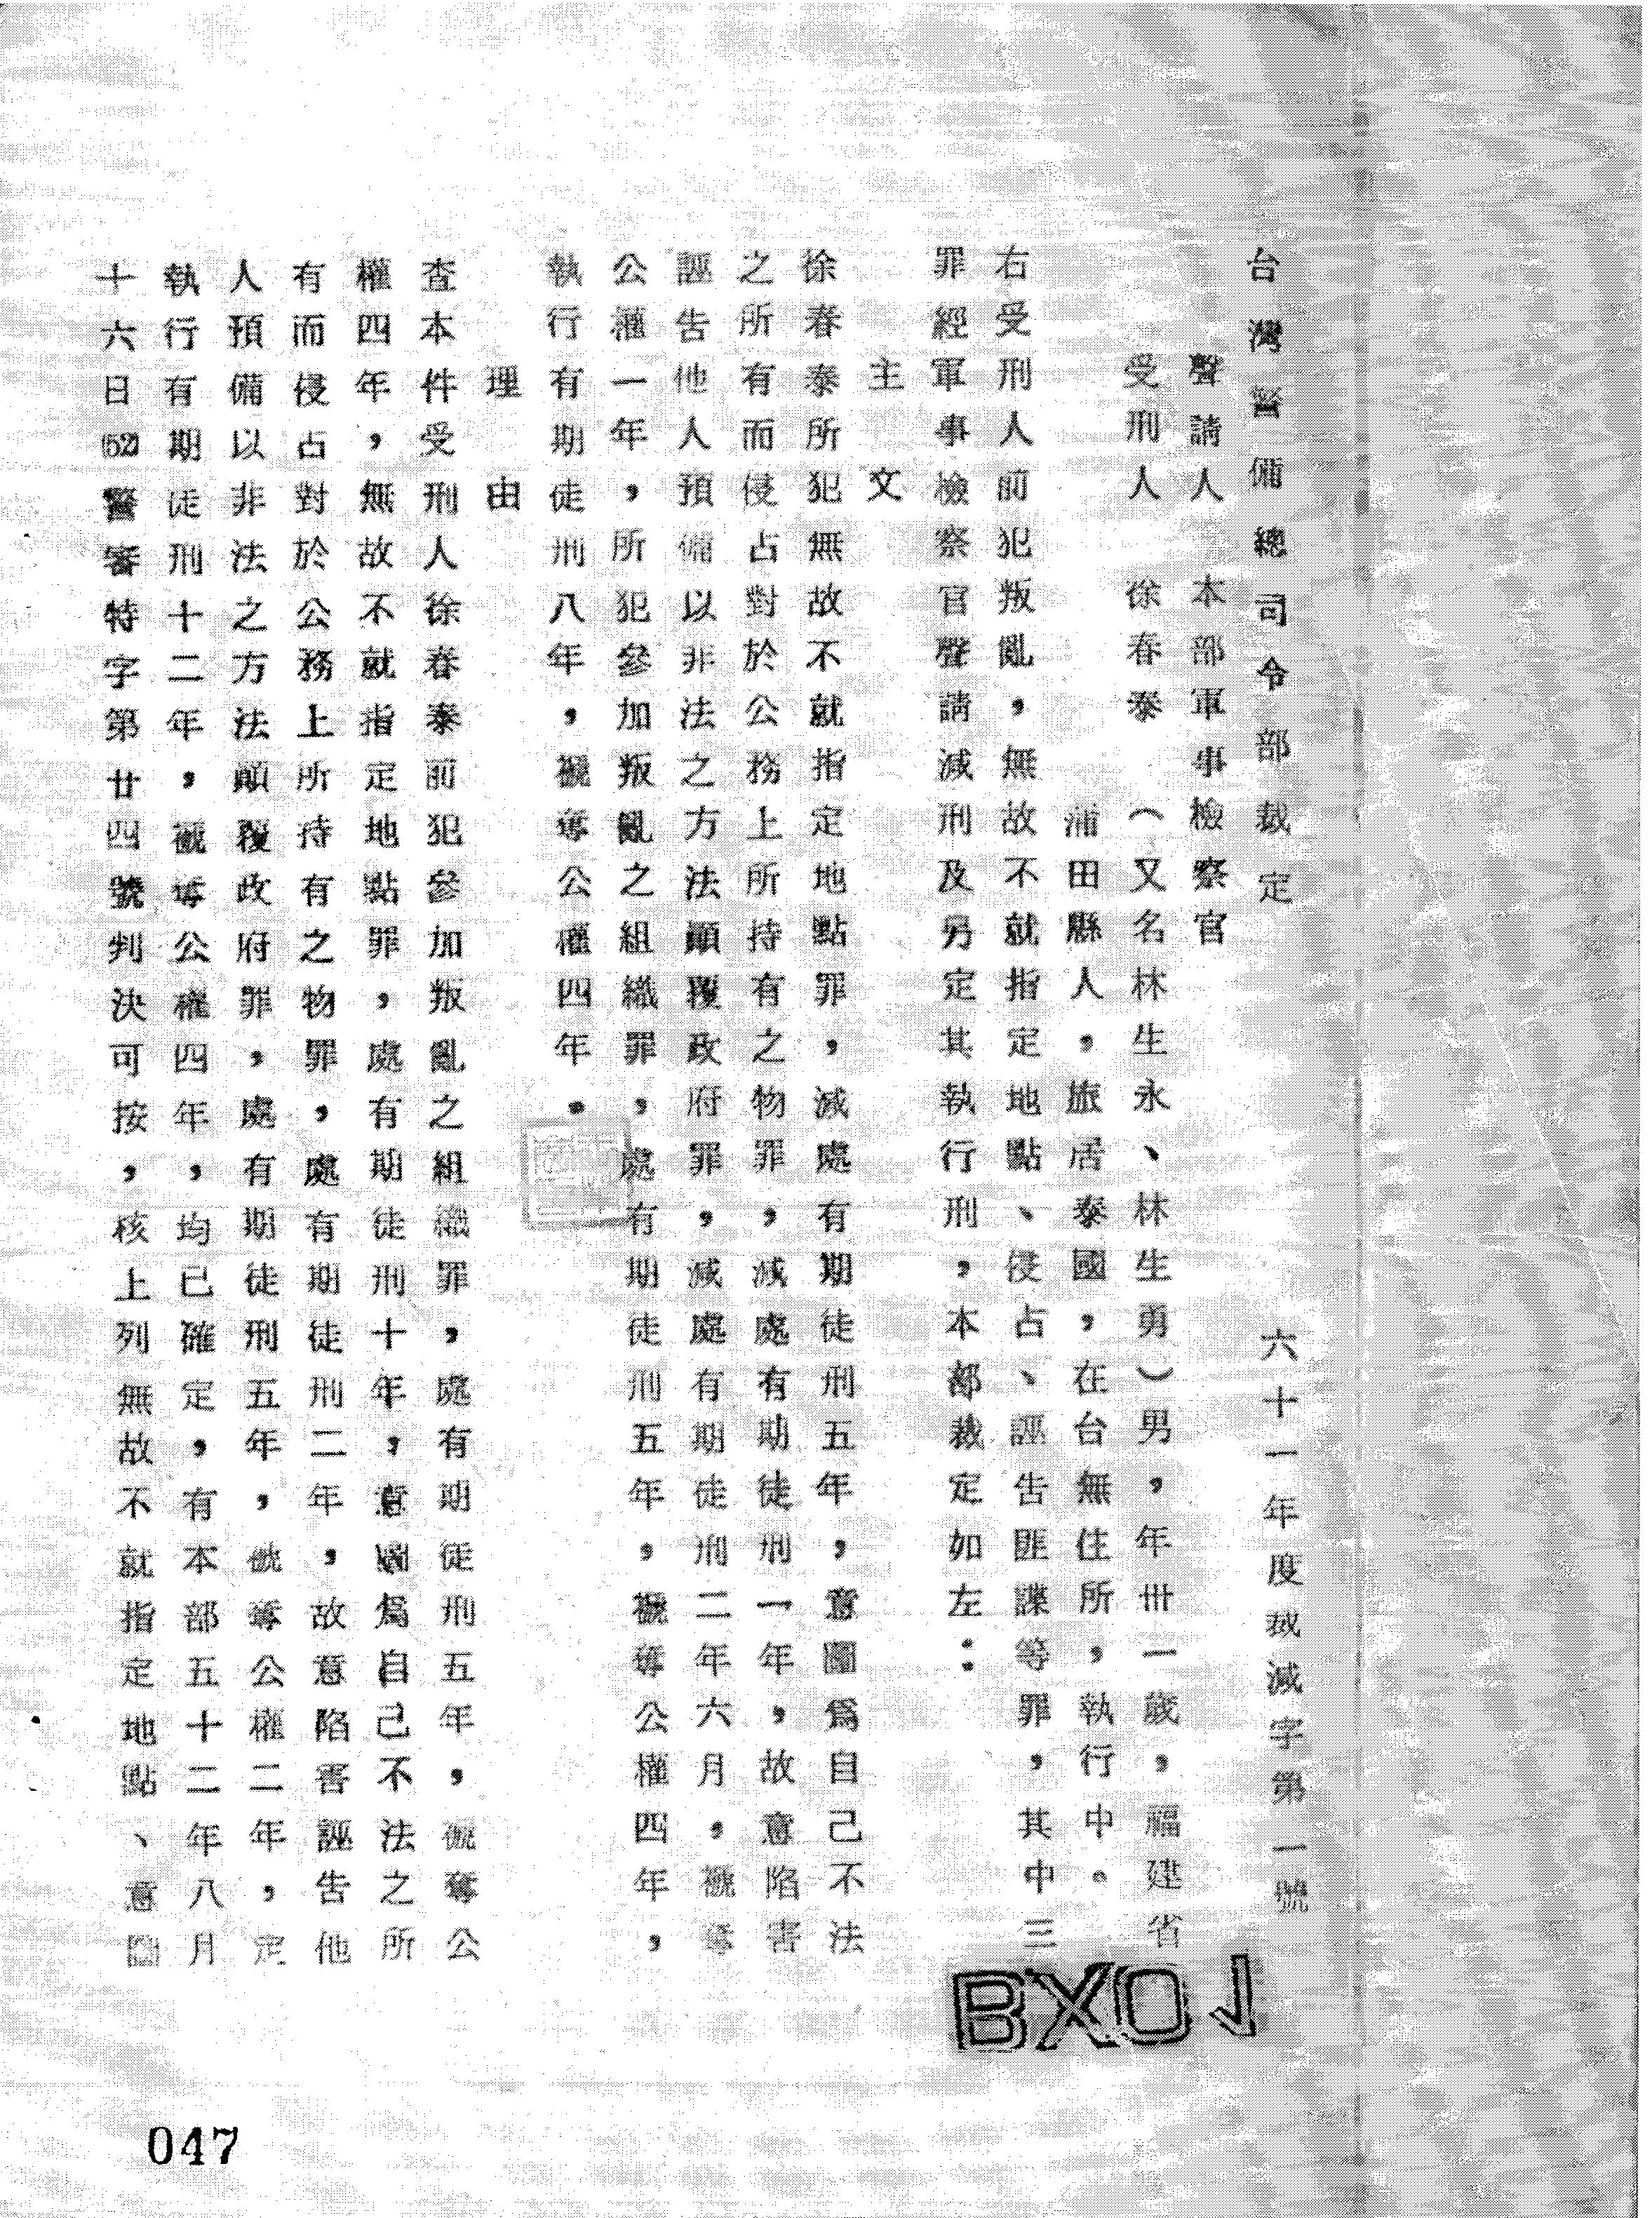 台灣警備總司令部裁定　六十一年度裁減字第一號
聲請人　本部軍事檢察官
受刑人　徐春泰　（又名林生永、林生勇）男，年卅一歲，福建省
浦田縣人，旅居泰國，在台無住所，執行中。
右受刑人前犯叛亂，無故不就指定地點、侵占、誣告匪諜等罪，其中三
罪經軍事檢察官聲請減刑及另定其執行刑，本部裁定如左：
主文
徐春泰所犯無故不就指定地點罪，減處有期徒刑五年，意圖為自己不法
之所有而侵占對於公務上所持有之物罪，減處有期徒刑一年，故意陷害
誣告他人預備以非法之方法顛覆政府罪，減處有期徒刑二年六月，褫奪
公權一年，所犯參加叛亂之組織罪，處有期徒刑五年，褫奪公權四年，
執行有期徒刑八年，褫奪公權四年。
理由
查本件受刑人徐春泰前犯參加叛亂之組織罪，處有期徒刑五年，褫奪公
權四年，無故不就指定地點罪，處有期徒刑十年，意圖為自己不法之所
有而侵占對於公務上所持有之物罪，處有期徒刑二年，故意陷害誣告他
人預備以非法之方法顛覆政府罪，處有期徒刑五年，褫奪公權二年，定
執行有期徒刑十二年，褫奪公權四年，均已確定，有本部五十二年八月
十六日(52)警審特字第廿四號判決可按，核上列無故不就指定地點、意圖
BXO J
047